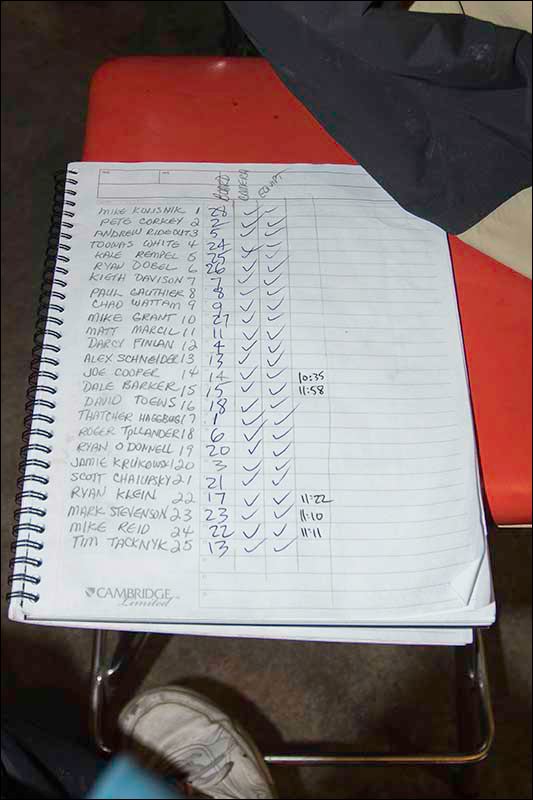 BOARD CAMERA EQUIPT
MIKE KOLISNIK 1 28 ✓ ✓
PETE CORKEY 2 2 ✓ ✓
ANDREW RIDEOUT 3 5 ✓ ✓
TOOMAS WHITE 4 24 ✓ ✓
KALE REMPEL 5 25 ✓ ✓
RYAN DOBEL 6 26 ✓ ✓
KIETH DAVISON 7 7 ✓ ✓
PAUL GAUTHIER 8 8 ✓ ✓
CHAD WATTAM 9 9 ✓ ✓
MIKE GRANT 10 27 ✓ ✓
MATT MARCIL 11 11 ✓ ✓
DARCY FINLAN 12 4 ✓ ✓
ALEX SCHNEIDER 13 13 ✓ ✓
JOE COOPER 14 14 ✓ ✓ 10:35
DALE BARKER 15 15 ✓ ✓ 11:58
DAVID TOEWS 16 18 ✓ ✓
THATCHER 17 1 ✓ ✓
ROGER TOLLANDER 18 6 ✓ ✓
RYAN O'DONNELL 19 20 ✓ ✓
JAMIE KRUKOWSKI 20 3 ✓ ✓
SCOTT 21 21 ✓ ✓
RYAN KLEIN 22 17 ✓ ✓ 11:22
MARK STEVENSON 23 23 ✓ ✓ 11:10
MIKE REID 24 22 ✓ ✓ 11:11
TIM TACKNYK 25 13 ✓ ✓
CAMBRIDGE
Limited